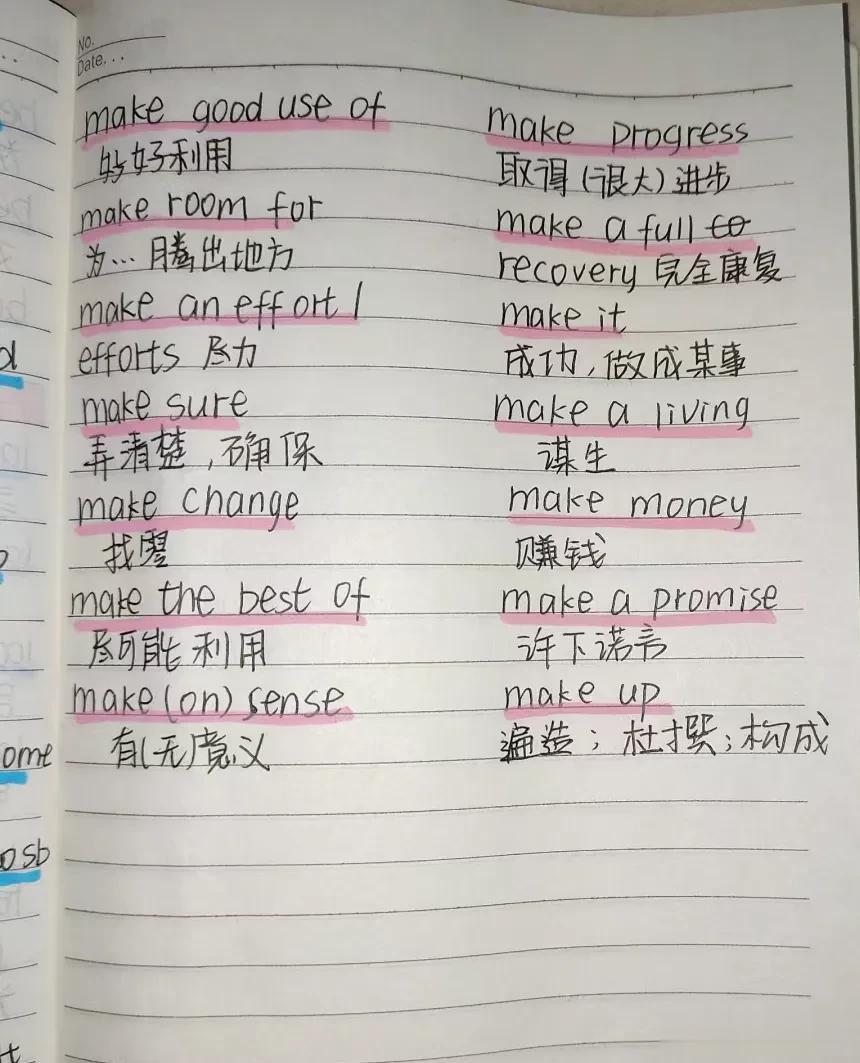 No.
Date. . .
make good use of
好好利用
make room for
为…腾出地方
make an effort /
efforts 尽力
make sure
弄清楚,确保
make change
找零
make the best of
尽可能利用
make (on) sense
有(无)意义
make progress
取得(很大)进步
make a full to
recovery 完全康复
make it
成功,做成某事
make a living
谋生
make money
赚钱
make a promise
许下诺言
make up
遍造;杜撰;构成
ome
osb